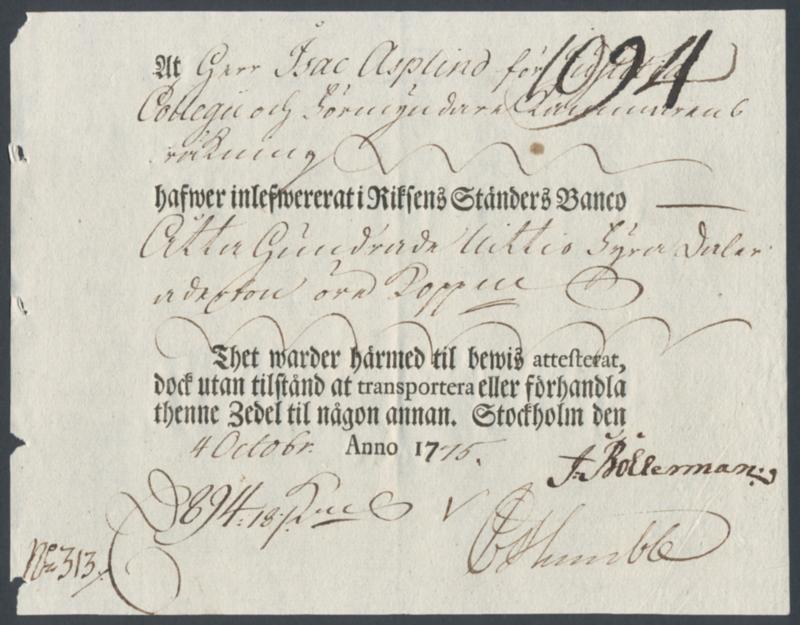 1094
At Herr Isac Asplind för
Collegii och Förmyndare Kammarens
räkning
hafwer inlefwererat i Riksens Ständers Banco
Åtta Hundrade Nittio Fyra Daler
aderton öre Kopp
Thet warder härmed til bewis attesterat,
dock utan tilstånd at transportera eller förhandla
thenne Zedel til någon annan. Stockholm den
4 Octobr. Anno 1775.
J. Bollerman
D 894: 18
Humble
No 313